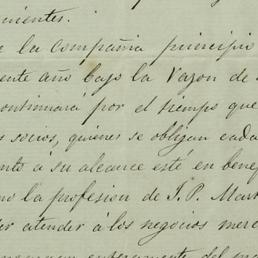 nientes.
e la compañia principio
ente año bajo la razon de
continuará por el tiempo que
s socios, quienes se obligan cada
nto á su alcance esté en bene
mo la profesion de J. P. Mart
der atender á los negocios mer